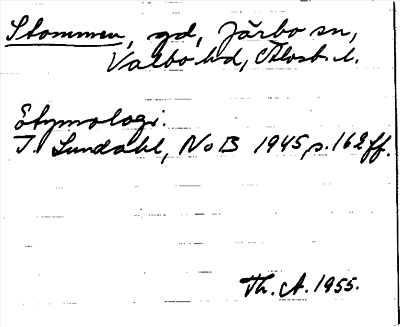 Stommen, gd, Järbo sn,
Valbo hd, Älvsb. l.
Etymologi.
I. Lundahl, NoB 1945 s. 162 ff.
Th. A. 1955.